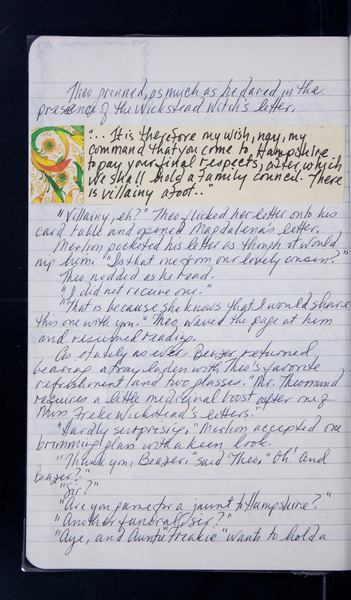 Theo grinned, as much as he dared in the
presence of the Wickstead Witch's letter.
"... It is therefore my wish, nay, my
command that you come to Hampshire
to pay your final respects, after which
we shall hold a family council. There
is villainy afoot.."
"Villainy, eh?" Theo flicked her letter onto his
card table and opened Magdalena's letter.
Merlion pocketed his letter as though it would
nip him. "Is that one from our lovely cousin?"
Theo nodded as he read.
"I did not receive one."
"That is because she knows that I would share
this one with you." Theo waved the page at him
and resumed reading.
As stately as ever Beazer returned
bearing a tray laden with Theo's favorite
refreshment and two glasses. "Mr. Theomund
requires a little medicinal boost after one of
Miss Freke Wickstead's letters."
"Hardly surprising," Merlion accepted one
brimming glass with a keen look.
"Thank you, Beazer," said Theo, "Oh! And
Beazer?"
"Sir?"
"Are you game for a jaunt to Hampshire?"
"Another funeral, sir?"
"Aye, and Auntie "Freakie" wants to hold a